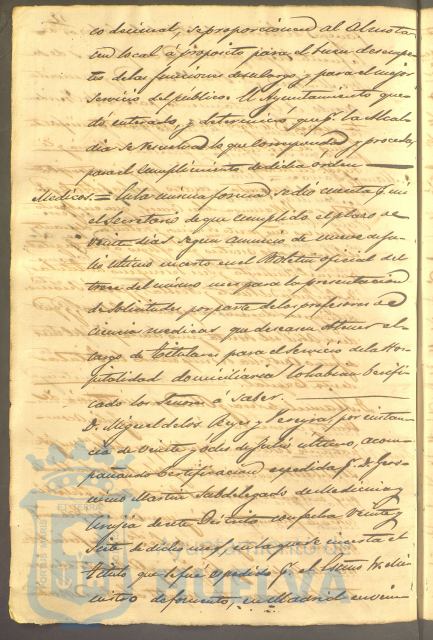 co decimal, se proporcionen al Almota
cen local á proposito para el buen desempe
ño de las funciones de su cargo, y para el mejor
servicio del público. El Ayuntamiento que
dó enterado, y determinó que p.r la Alcal
dia se resuelva lo que corresponda y proceda
para el cumplimiento de dicha órden
Medicos. = En la misma forma se dió cuenta p.r mi
el Secretario de que cumplido el plazo de
veinte dias segun anuncio de nueve de Ju
lio ultimo inserto en el Boletin oficial del
trece del mismo mes para la presentacion
de solicitudes por parte de los profesores de
ciencias medicas que deseasen obtener el
cargo de titulares para el servicio de la Hos
pitalidad domiciliaria lo habian verifi
cado los Señores á saber.
D. Miguel de los Reyes y Pereyra por instan
cia de veinte y ocho de Julio ultimo, acom
pañando certificacion expedida p.r D. Geró
nimo Martin Subdelegado de Medicina y
Cirujia de este Distrito con fecha veinte y
siete de dicho mes, en la que se inserta el
titulo que le fué expedido p.r el Exmo. Sr. Mi
nistro de Fomento, en Madrid en vein
Ayuntamiento de
HUELVA